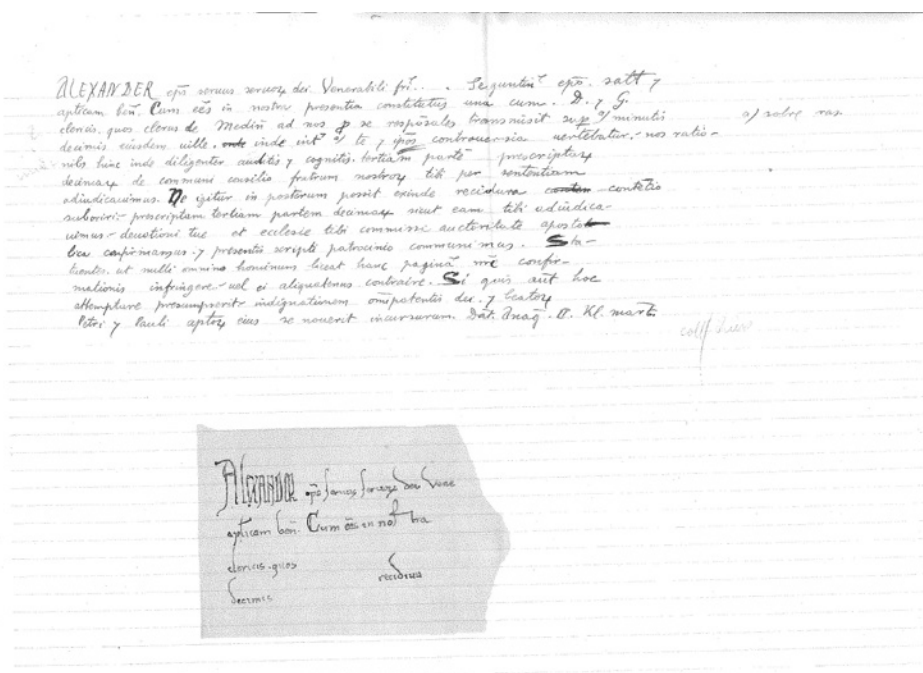 ALEXANDER ep̄s seruus seruoꝝ dei. Venerabili fr̄i.. . Seguntin̄ ep̄o. salt̄ ⁊
ap̄licam ben̄. Cum eēs in nostra presentia constitutus una cum . D. ⁊ G.
clericis. quos clerus de Medin̄ ad nos ꝓ se respōsales transmisit sup̱ a) minutis a) sobre ras.
decimis eiusdem uille. inde int̄ a) te ⁊ ip̄os controuersia uertebatur. nos ratio-
nib3 hinc inde diligenter auditis ⁊ cognitis. tertiam partē prescriptaꝝ
decimaꝝ de communi consilio fratrum nostroꝝ tibi per sententiam
adiudicauimus. Ne igitur in posterum possit exinde recidiua contētio
suboriri. prescriptam tertiam partem decimaꝝ sicut eam tibi adiudica-
uimus. deuotioni tue et ecclesie tibi commisse auctoritate aposto
lica confirmamus. ⁊ presentis scripti patrocinio communimus. Sta-
tuentes. ut nulli omnino hominum liceat hanc paginā nr̄e confir-
mationis infringere uel ei aliquatenus contraire. Si quis aut̄ hoc
attemptare presumpserit indignationem om̄ipotentis dei. ⁊ beatoꝝ
Petri ⁊ Pauli aptoꝝ eius se nouerit incursurum. Dat̄. Anaḡ. II. Kl. mart̄.
ALEXANDER ep̄s seruus seruoꝝ dei Vene
ap̄licam ben̄. Cum eēs in nost tra
clericis. quos
recidiua
decimis